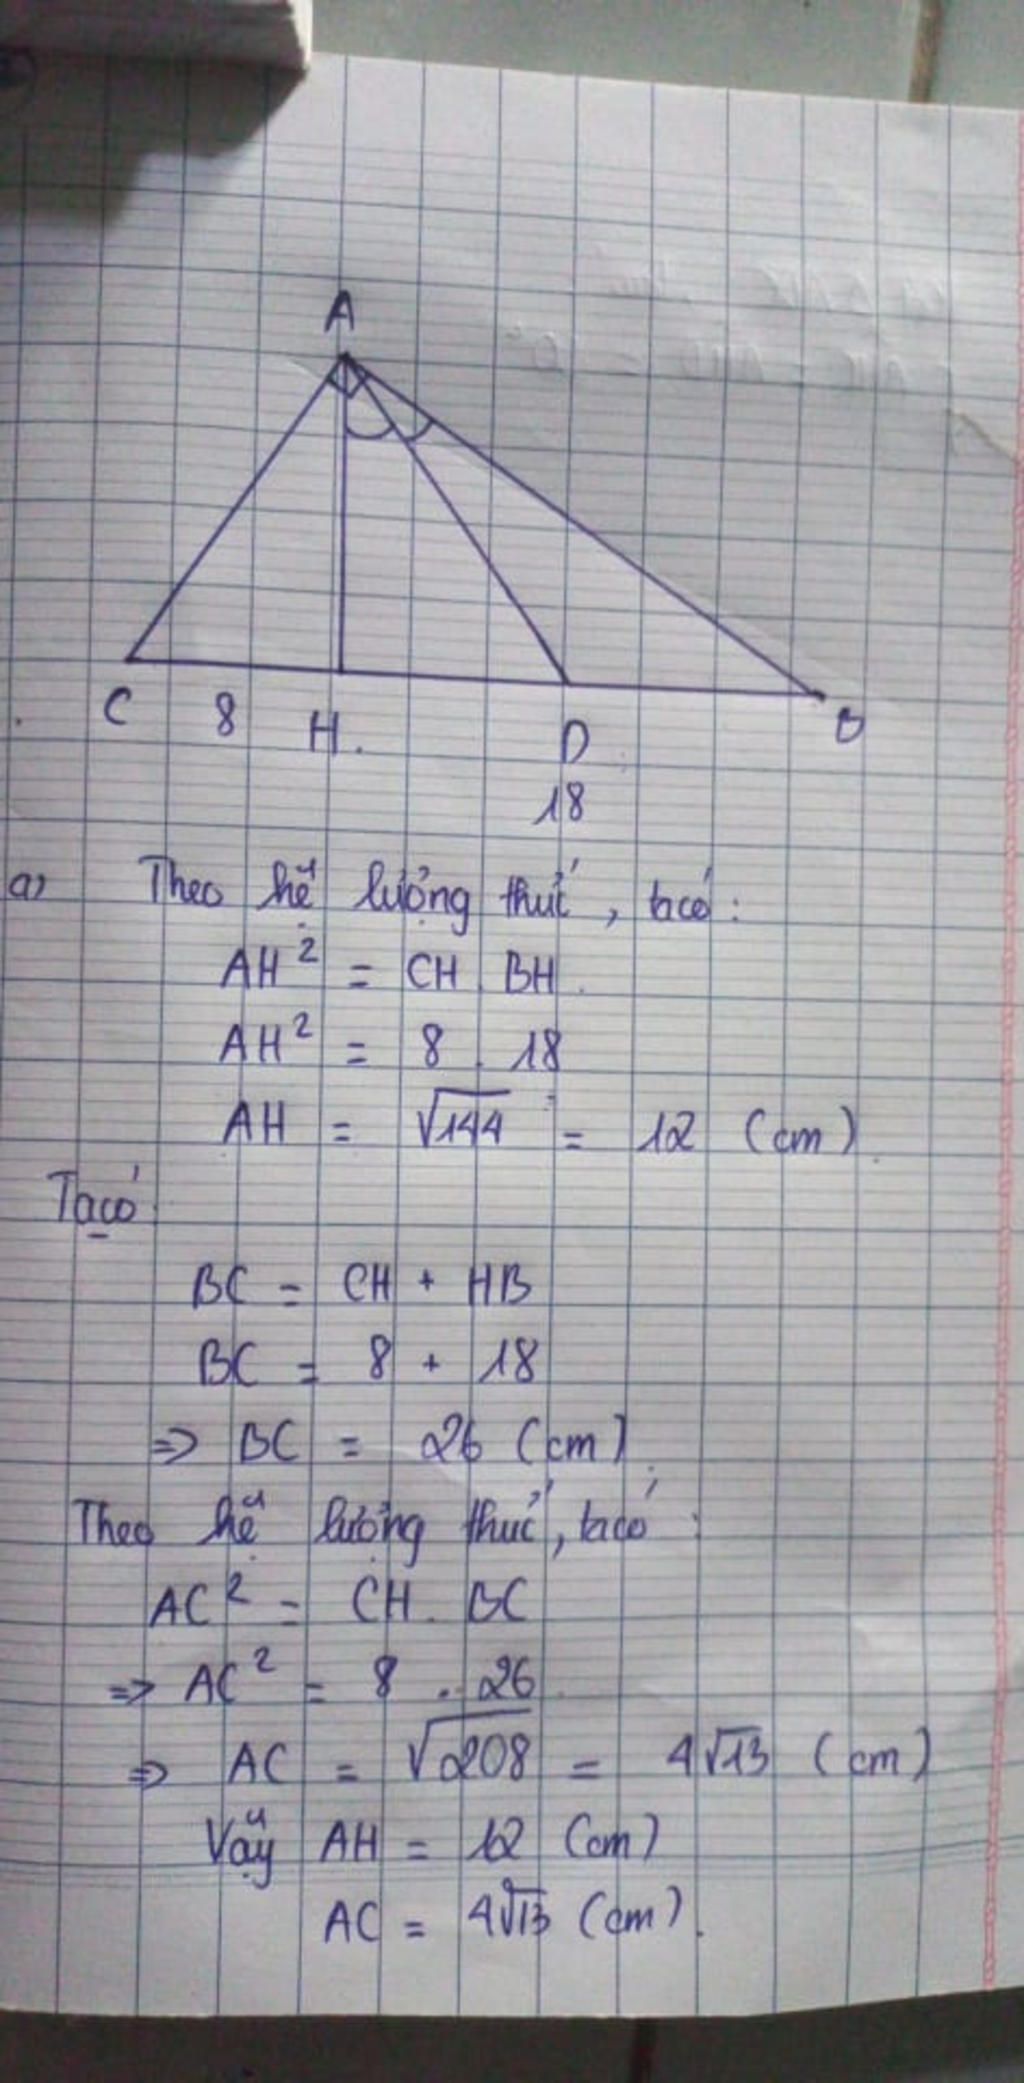 A
C 8 H . D B
18
a) Theo hệ lượng thức, ta có :
AH² = CH . BH .
AH² = 8 . 18
AH = √144 = 12 (cm) .
Ta có
BC = CH + HB
BC = 8 + 18
=> BC = 26 (cm) .
Theo hệ lượng thức, ta có :
AC² = CH . BC
=> AC² = 8 . 26 .
=> AC = √208 = 4√13 (cm)
Vậy AH = 12 (cm)
AC = 4√13 (cm) .